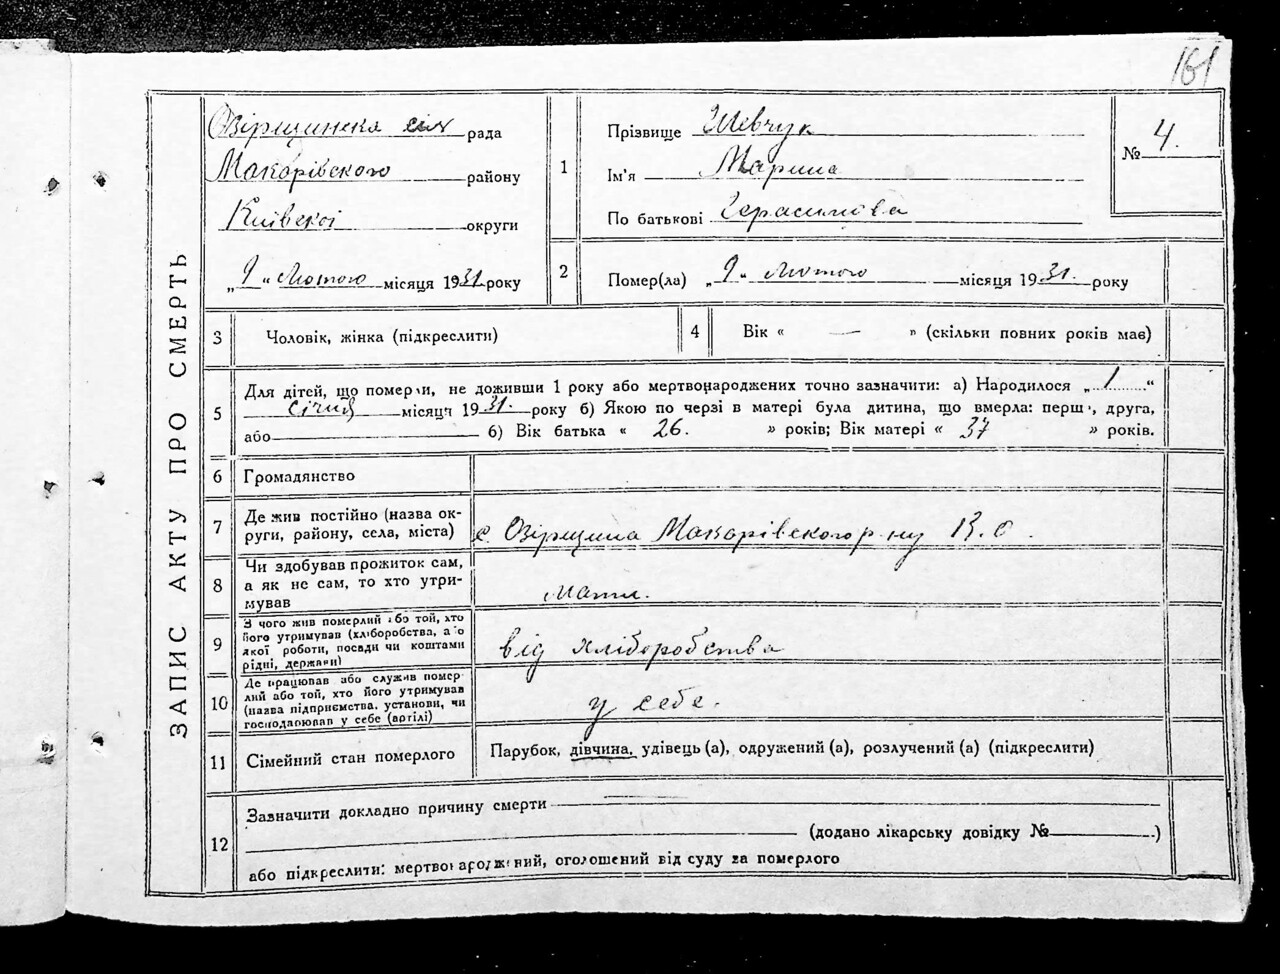 161
ЗАПИС АКТУ ПРО СМЕРТЬ
Озірщинска сіл рада
Макарівского району
Київскої округи
„9“ Лютого місяця 1931 року
1
Прізвище Шевчук
Ім'я Марина
По батькові Герасимова
№ 4.
2
Помер(ла) „9“ лютого місяця 1931. року
3 Чоловік, жінка (підкреслити)
4 Вік « — » (скільки повних років має)
5 Для дітей, що померли, не доживши 1 року або мертвонароджених точно зазначити: а) Народилося „1“
січня місяця 1931. року б) Якою по черзі в матері була дитина, що вмерла: перша, друга,
або б) Вік батька « 26. » років; Вік матері « 37 » років.
6 Громадянство
7 Де жив постійно (назва ок-
руги, району, села, міста)
с Озірщина Макарівского р-ну К. о.
8 Чи здобував прожиток сам,
а як не сам, то хто утри-
мував
мати.
9 З чого жив померлий або той, хто
його утримував (хліборобства, або
якої роботи, посади чи коштами
рідні, держави)
від хліборобства
10 Де працював або служив помер-
лий або той, хто його утримував
(назва підприємства, установи, чи
господарював у себе (артілі)
у себе.
11 Сімейний стан померлого Парубок, дівчина, удівець (а), одружений (а), розлучений (а) (підкреслити)
12 Зазначити докладно причину смерти
(додано лікарську довідку № )
або підкреслити: мертвонароджений, оголошений від суду за померлого